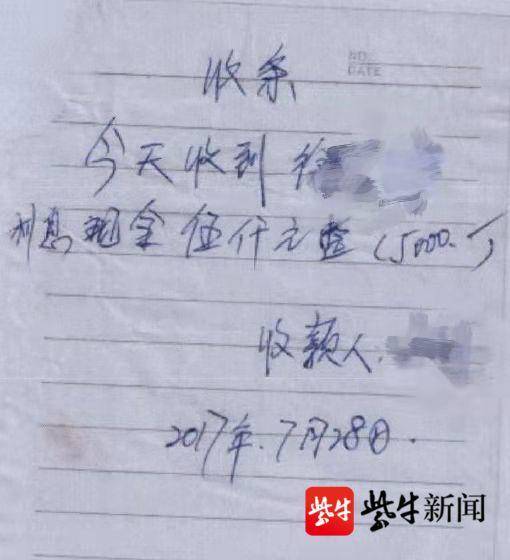 收条
NO.
DATE
今天收到徐
利息现金伍仟元整(5000.)
收款人.
2017年.7月28日.
紫牛 紫牛新闻